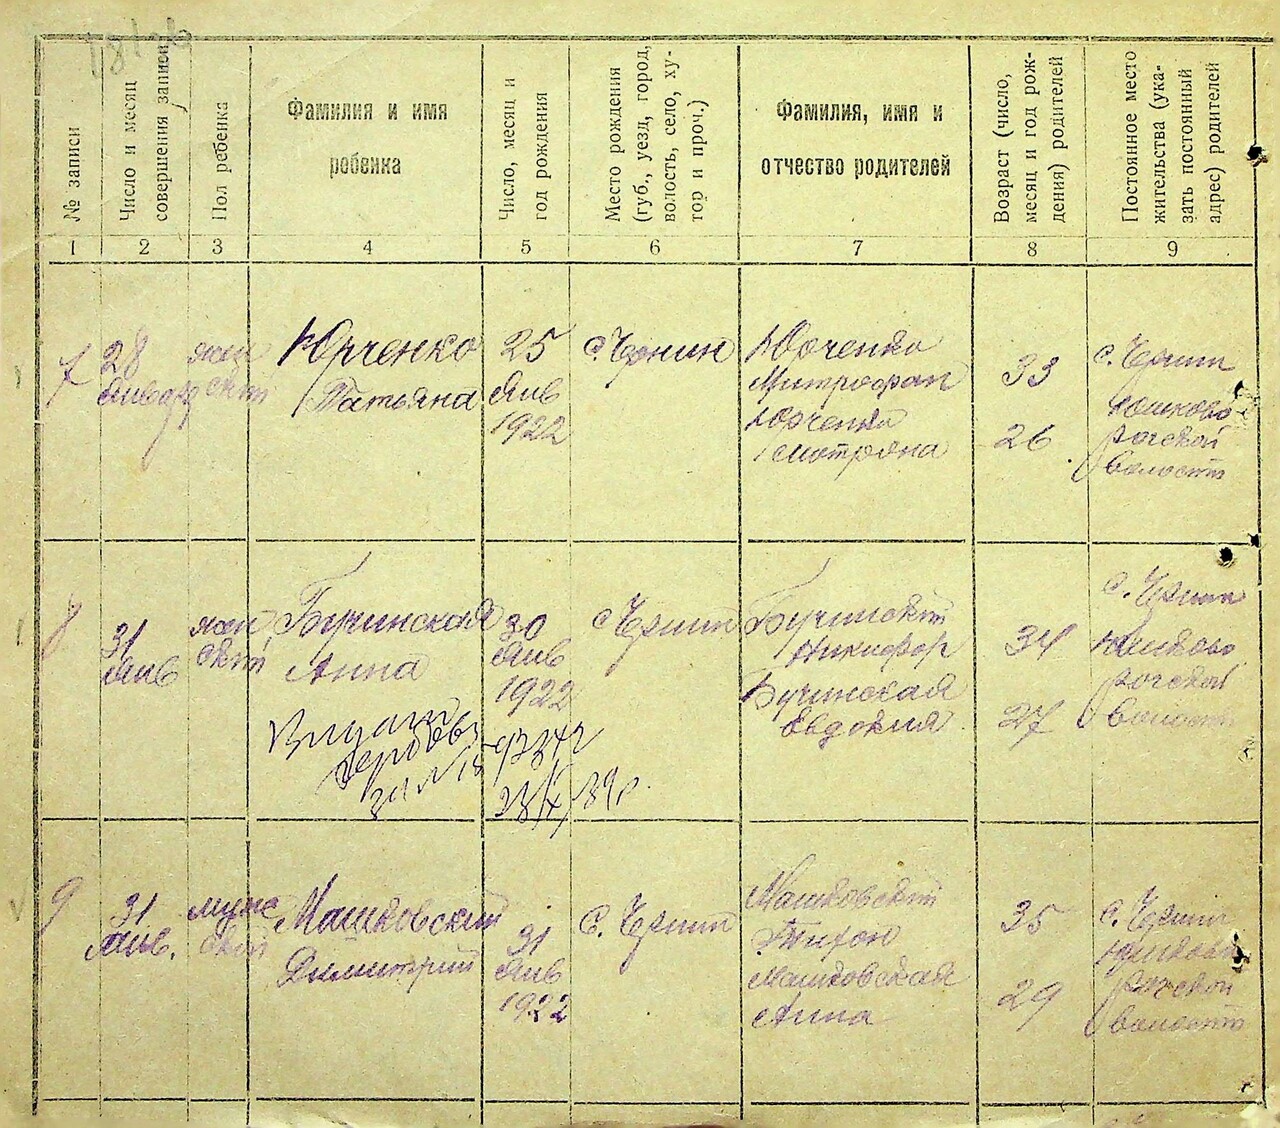 № записи
Число и месяц
совершения записи
Пол ребенка
Фамилия и имя
ребенка
Число, месяц и
год рождения
Место рождения
(губ., уезд, город,
волость, село, ху-
тор и проч.)
Фамилия, имя и
отчество родителей
Возраст (число,
месяц и год рож-
дения) родителей
Постоянное место
жительства (ука-
зать постоянный
адрес) родителей
1 2 3 4 5 6 7 8 9
7
28
Январ
жен
ский
Юрченко
Татьяна
25
Янв
1922
с. Чернин
Юрченко
Митрофан
Юрченко
Мотряна
33
26
с. Чернин
рогской
волости
8
31
Янв
жен
ский
Бучинская
Анна
30
Янв
1922
с. Чернин
Бучинский
Никифор
Бучинская
Евдокия
34
27
с. Чернин
рогской
волости
9
31
Янв.
муже
ский
Машковский
Димитрий
31
Янв
1922
С. Чернин
Машковский
Тихон
Машковская
Анна
35
29
с. Чернин
рогской
волости